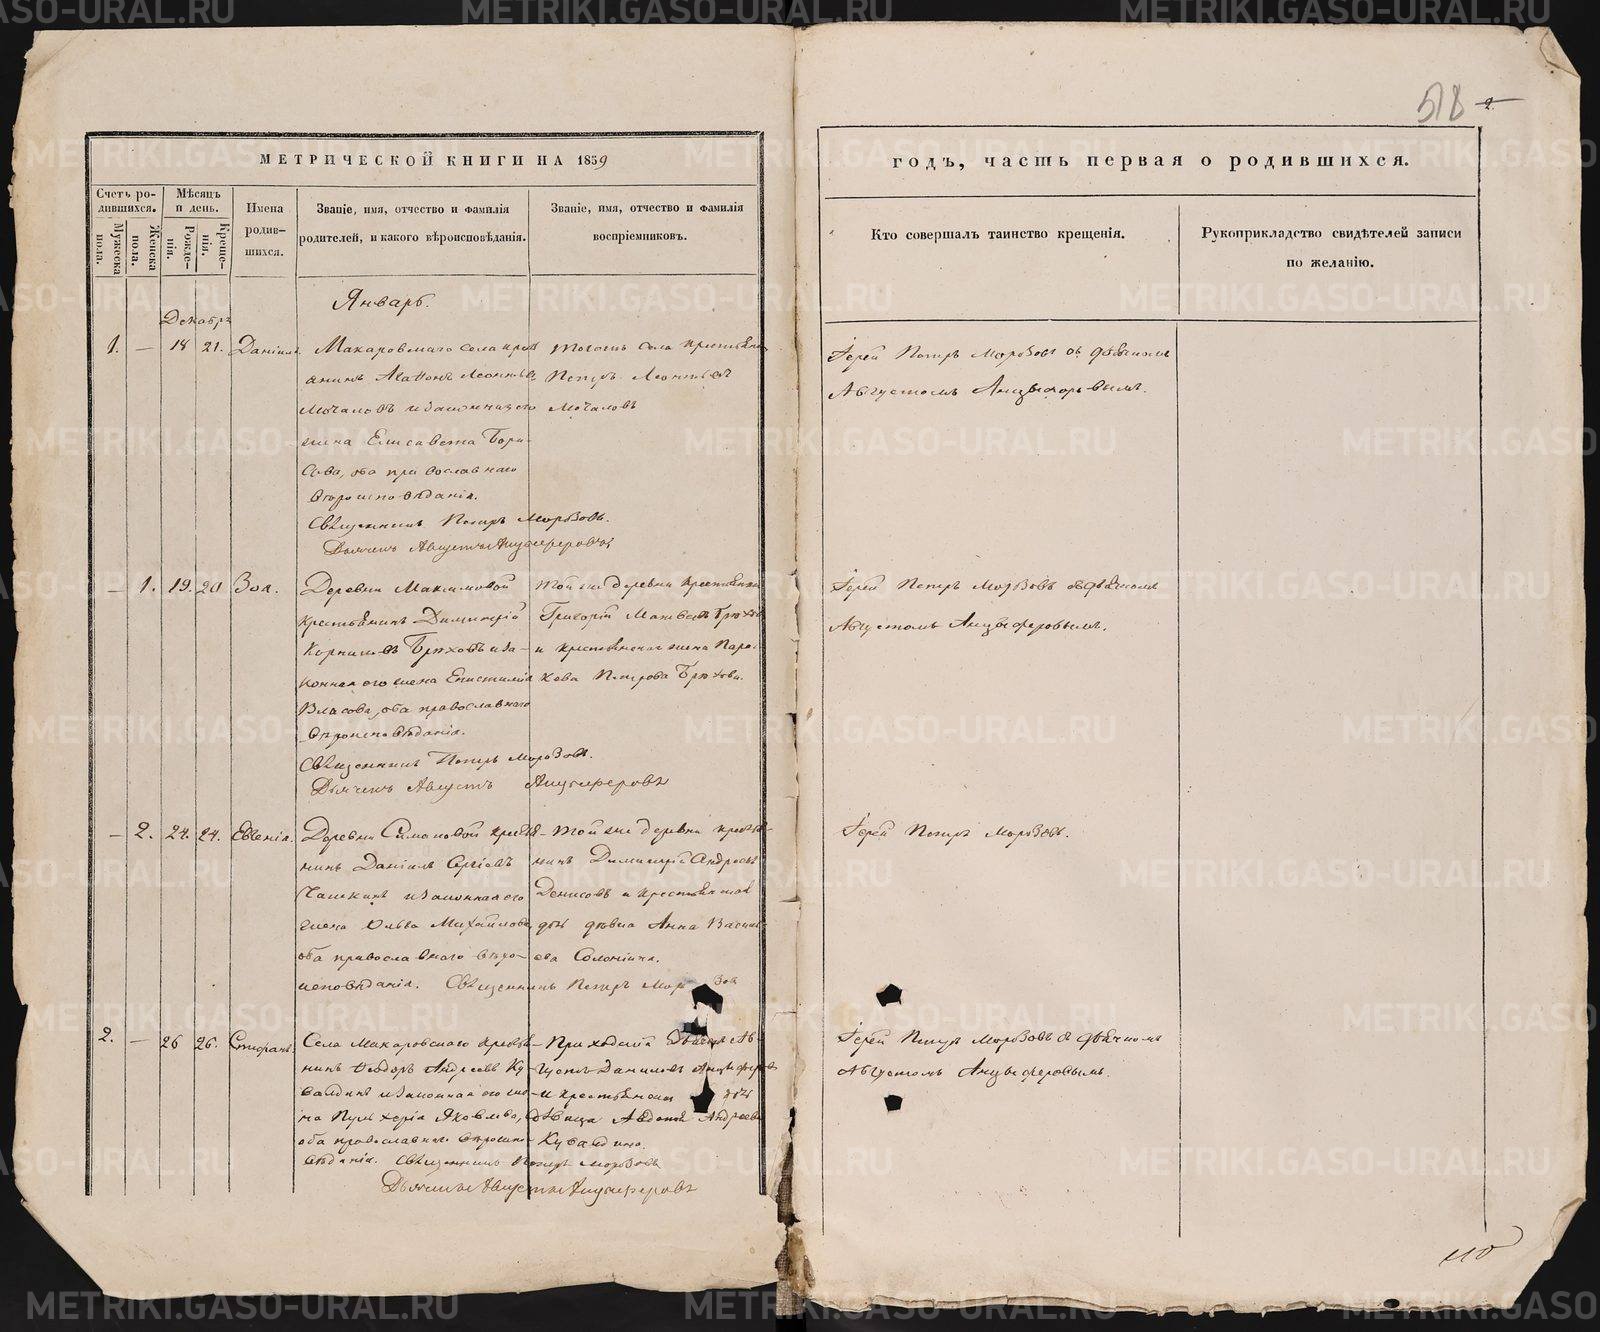 518 2.
МЕТРИЧЕСКОЙ КНИГИ НА 1859
годъ, часть первая о родившихся.
Счетъ родившихся.
Мужеска пола.
Женска пола.
Мѣсяцъ и день.
Рожденія.
Крещенія.
Имена родившихся.
Званіе, имя, отчество и фамилія родителей, и какого вѣроисповѣданія.
Званіе, имя, отчество и фамилія воспріемниковъ.
Кто совершалъ таинство крещенія.
Рукоприкладство свидѣтелей записи по желанію.
Январь.
Декабрь
1. — 18 21. Даніилъ.
Макаровскаго села крест
анинъ Агафонъ Леонтьев
Мочаловъ и законная его
жена Елисавета Бори-
сова, оба православнаго
вѣроисповѣданія.
Священникъ Петръ Морозовъ.
Дьячекъ Августъ Анцыферовъ
тогожъ села крестьянин
Петръ Леонтьевъ
Мочаловъ
Іерей Петръ Морозовъ съ дьячкомъ
Августомъ Анцыферовымъ.
— 1. 19. 20 Зоя.
Деревни Макимовой
крестьянинъ Димитрій
Корниловъ Брюховъ и за-
конная его жена Епистимія
Власова, оба православнаго
вѣроисповѣданія.
Священникъ Петръ Морозовъ.
Дьячекъ Августъ Анцыферовъ
той же деревни крестьянинъ
Григорій Матвеевъ Брюховъ
и крестьянская жена Пара-
кева Петрова Брюхова.
Іерей Петръ Морозовъ съ дьячкомъ
Августомъ Анцыферовымъ.
— 2. 24. 24. Евгенія.
Деревни Симоновой кресть-
нинъ Даніилъ Сергіевъ
Чашкинъ и законная его
жена Ольга Михайлова
оба православнаго вѣро-
исповѣданія. Священникъ Петръ Морозов
той же деревни кресть-
нинъ Димитрій Андреевъ
Денисовъ и крестьянская
дѣвка Анна Василь-
ева
Іерей Петръ Морозовъ.
2. — 26 26. Стефанъ.
Села Макаровскаго кресть-
нинъ Ѳеодоръ Андреевъ Ку-
валдинъ и законная его же-
на Пульхерія Яковлева,
оба православнаго вѣроиспо-
вѣданія. Священникъ Петръ Морозовъ
Дьячекъ Августъ Анцыферовъ
Приходскій Ав-
густъ Даниловъ Анцыферов
и крестьянская дочь
дѣвица Авдотья Андреева
Кувалдина.
Іерей Петръ Морозовъ съ дьячкомъ
Августомъ Анцыферовымъ.
METRIKI.GASO-URAL.RU